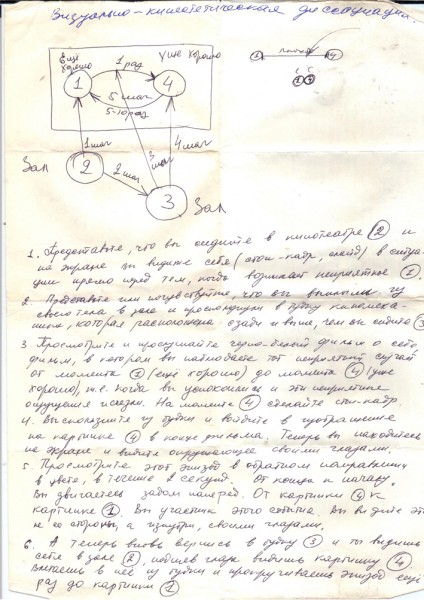 Визуально-кинестетическая диссоциация.
Ещё хорошо
уже хорошо
1 раз
1
4
5 шаг
5-10 раз
1 шаг
3 шаг
4 шаг
Зал
2
2 шаг
3
Зал
1
4
1 4
1. Представьте, что вы сидите в кинотеатре (2) и
на экране вы видите себя (стоп-кадр, слайд) в ситуа-
ции прямо перед тем, когда возникает неприятное (1).
2. Представьте или почувствуйте, что вы выплыли из
своего тела в зале и проскользнули в будку кинемеха-
ника, которая расположена сзади и выше, чем вы сидите (3
3. Просмотрите и прослушайте черно-белый фильм о себе,
фильм, в котором вы наблюдаете тот неприятный случай
от момента (1) (ещё хорошо) до момента (4) (уже
хорошо), т.е. когда вы успокоились и эти неприятные
ощущения исчезли. На моменте (4) сделайте стоп-кадр.
4. Выскользните из будки и войдите в изображение
на картинке (4) в конце фильма. Теперь вы находитесь
на экране и видите окружающее своими глазами.
5. Просмотрите этот эпизод в обратном направлении
в цвете, в течение секунд. От конца к началу.
Вы двигаетесь задом наперед. От картинки (4) к
картинке (1). Вы участник этого события. Вы видите это
не со стороны, а изнутри, своими глазами.
6. А теперь вновь вернись в будку (3) и ты видишь
себя в зале (2), подняв глаза видишь картинку (4).
Влетаешь в неё из будки и прокручиваешь эпизод ещё
раз до картинки (1)